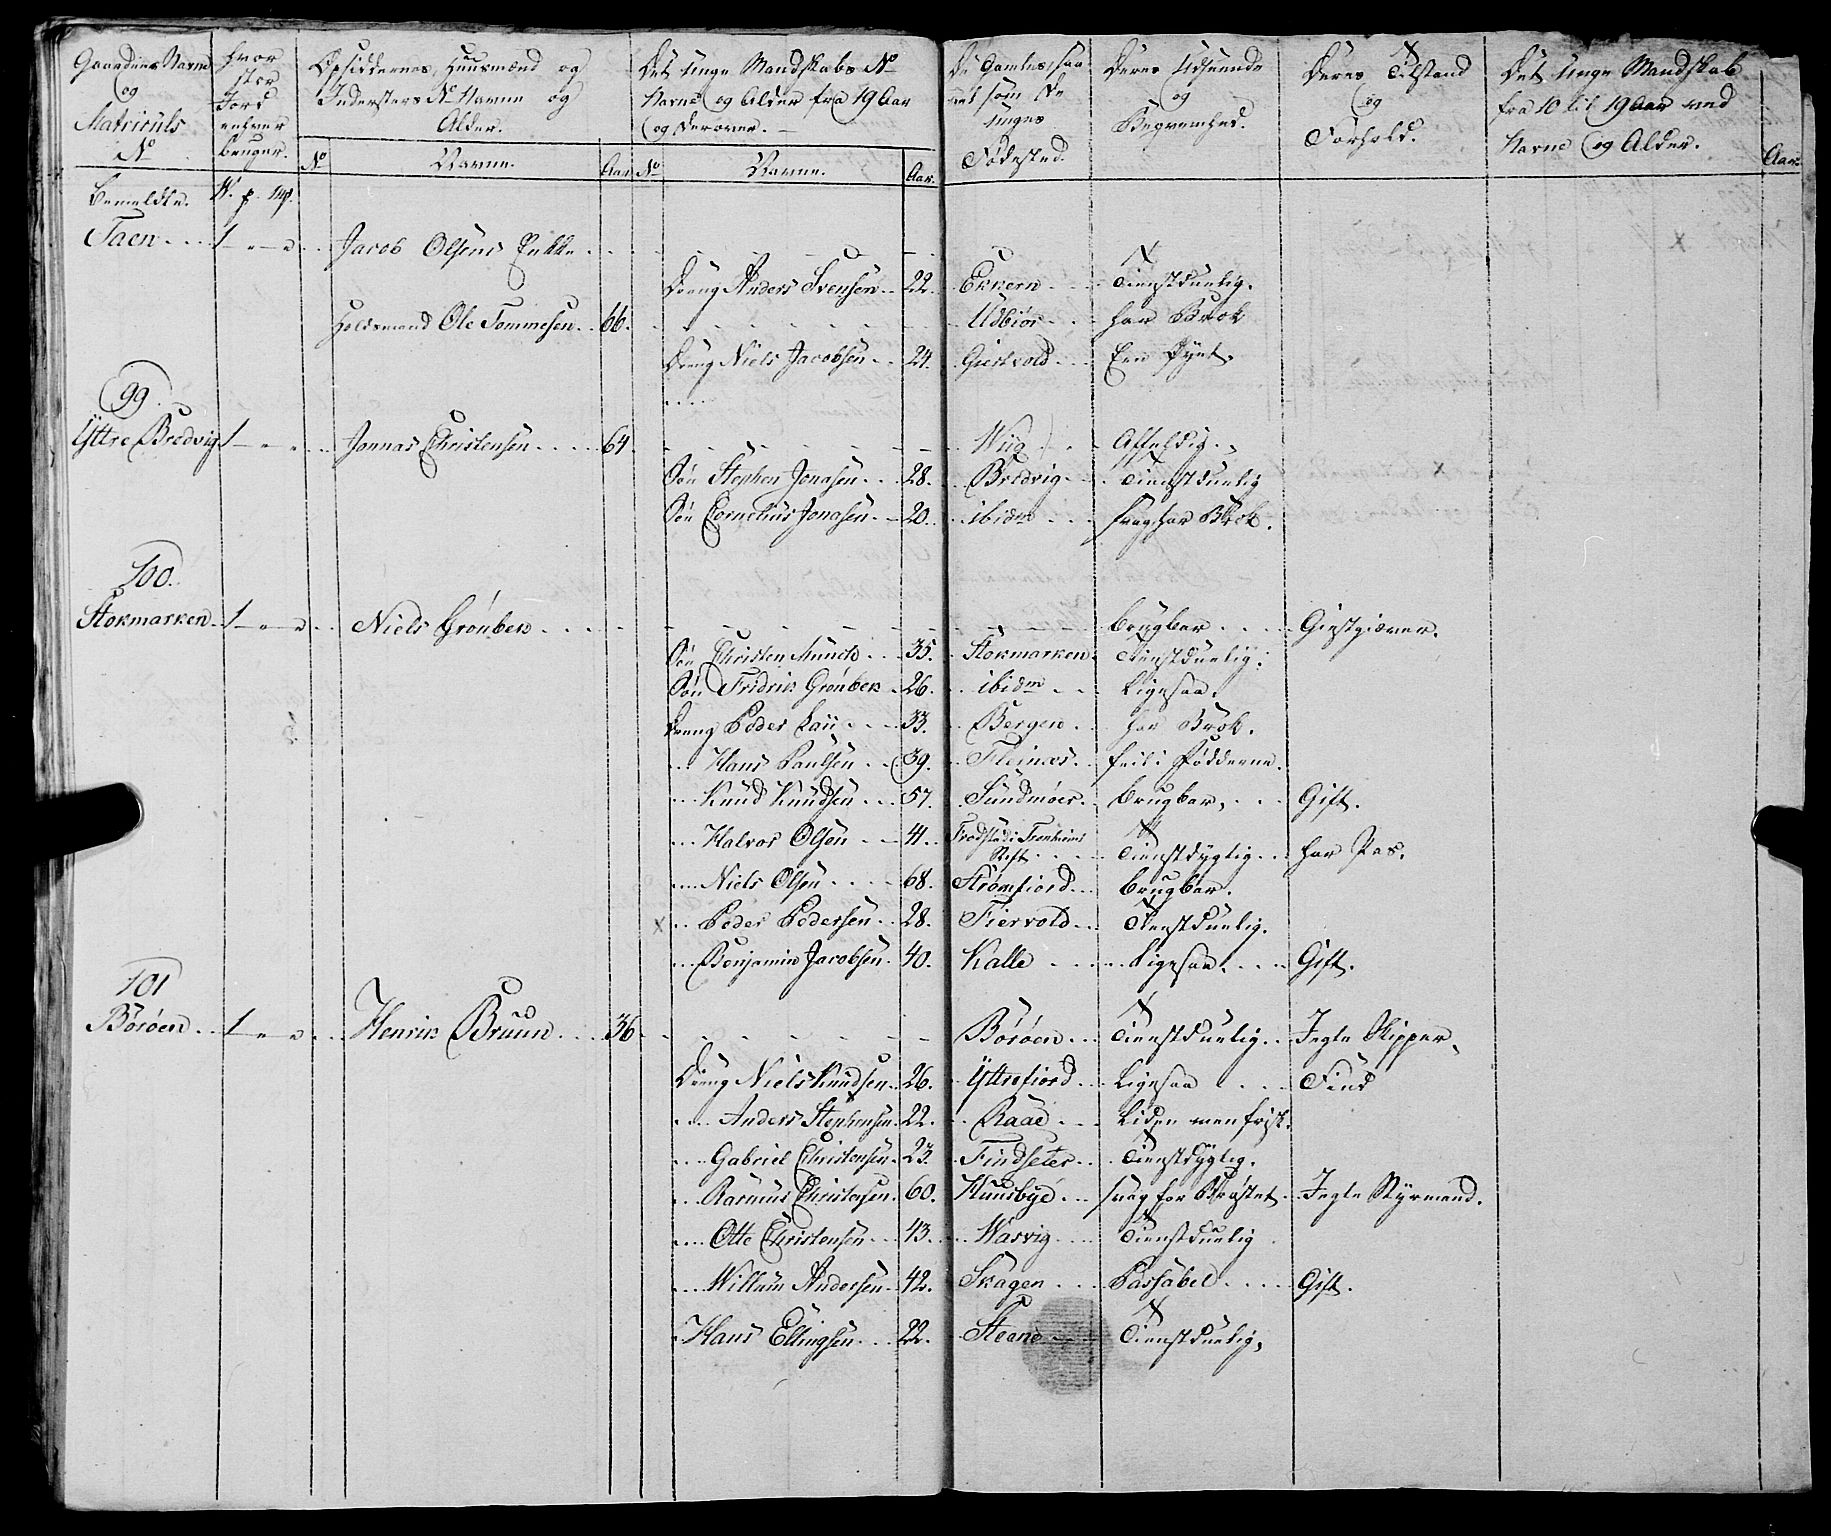 Gaardens Navne og Matriculs No
hvor stor Jord enhver bruger.
Opsiddernes, Huusmænd og Indersters No Navne og Alder.
Det unge Mandskabs No Navne og Alder fra 19 Aar og derover.
De Gamles, saavel som de unges Fødested.
Deres Udseende og Beqvemhed.
Deres Tilstand og Forhold.
Det unge Mandskab fra 10 til 19 Aar med Navne og Alder.
No Navne. Aar No Navne. Aar. Aar.
Bemeldte W. p. mk.
Taen 1 Jacob Olsens Enke
Dreng Anders Svensen 22. Ekkern Tienstduelig.
Holdsmand Ole Tommesen 66. Udbiør har Brok
Dreng Niels Jacobsen 24. Giestvold
99.
Yttre Bredvig 1 Jonnas Christensen 64. Wiig Affeldig.
Søn Stephen Jonasen 28. Bredvig Tienstduelig
Søn Cornelius Jonasen 20. ibidm svag, har Brok.
100.
Stokmarken 1 Niels Grönbek brugbar Giestgiver.
Søn Christen Munch 35. Stokmarken Tienstduelig.
Søn Fridrik Grönbek 26. ibidm Ligesaa.
Dreng Peder Lau 33. Bergen har Brok.
Hans Paulsen 39. Fleinæs feil i Fødderne.
Knud Knudsen 57. Sundmöer brugbar, Gift.
Halvor Olsen 41. Fredstad i Tronhiems Stift Tienstdygtig har Pas.
Niels Olsen 68. Strömfiord brugbar.
x Peder Pedersen 28. Fiervold Tienstduelig.
Benjamin Jacobsen 40. Kalle Ligesaa Gift.
101
Börøen 1 Henrik Bruun 36 Börøen Tienstduelig Jegte Skipper,
Dreng Niels Knudsen 26. Yttrefiord Ligesaa Find
Anders Stephensen 22. Raae Liden men frisk.
Gabriel Christensen 23. Findseter Tienstdygtig.
Rasmus Christensen 60. Huusbye svag for Brøstet Jegte Styrmand.
Otte Christensen 43. Warvig Tienstduelig
Willum Andersen 42. Skagen Passabel Gift.
Hans Ellingsen 22. Steene Tienstduelig,